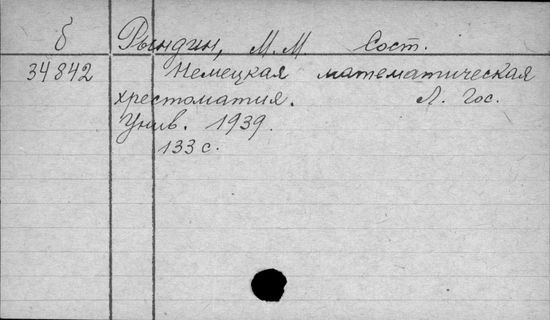 б Рындин, М. М. Сост.
34842 Немецкая математическая
хрестоматия. Л. Гос.
Унив. 1939.
133 с.